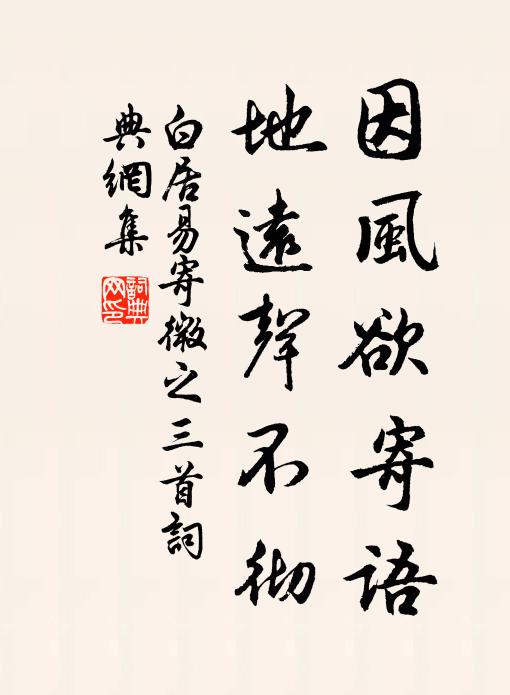 因風欲寄語
地遠聲不彻
白居易寄微之三首詞
典網集
詞典网印